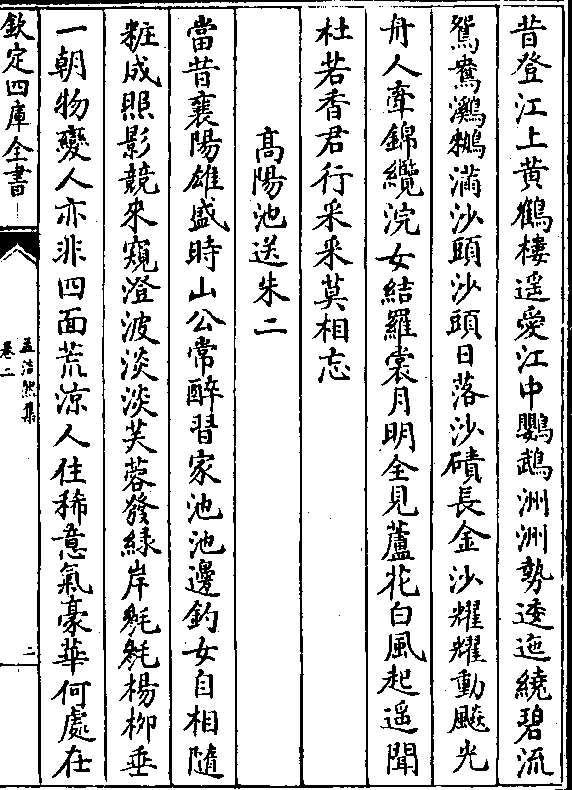 昔登江上黄鶴棲遥愛江中鸚鵡洲洲勢逶迤繞碧流
鴛鴦鸂鶒滿沙頭沙頭日落沙磧長金沙耀耀動飈光
舟人牽錦纜浣女結羅裳月明全見蘆花白風起遥聞
杜若香君行采采莫相忘
髙陽池送朱二
當昔襄陽雄盛時山公常醉習家池池邊釣女自相隨
粧成照影競來窺澄波淡淡芙蓉發緑岸毿毿楊栁垂
一朝物變人亦非四面荒凉人住稀意氣豪華何處在
欽定四庫全書
孟浩然集
卷二
二